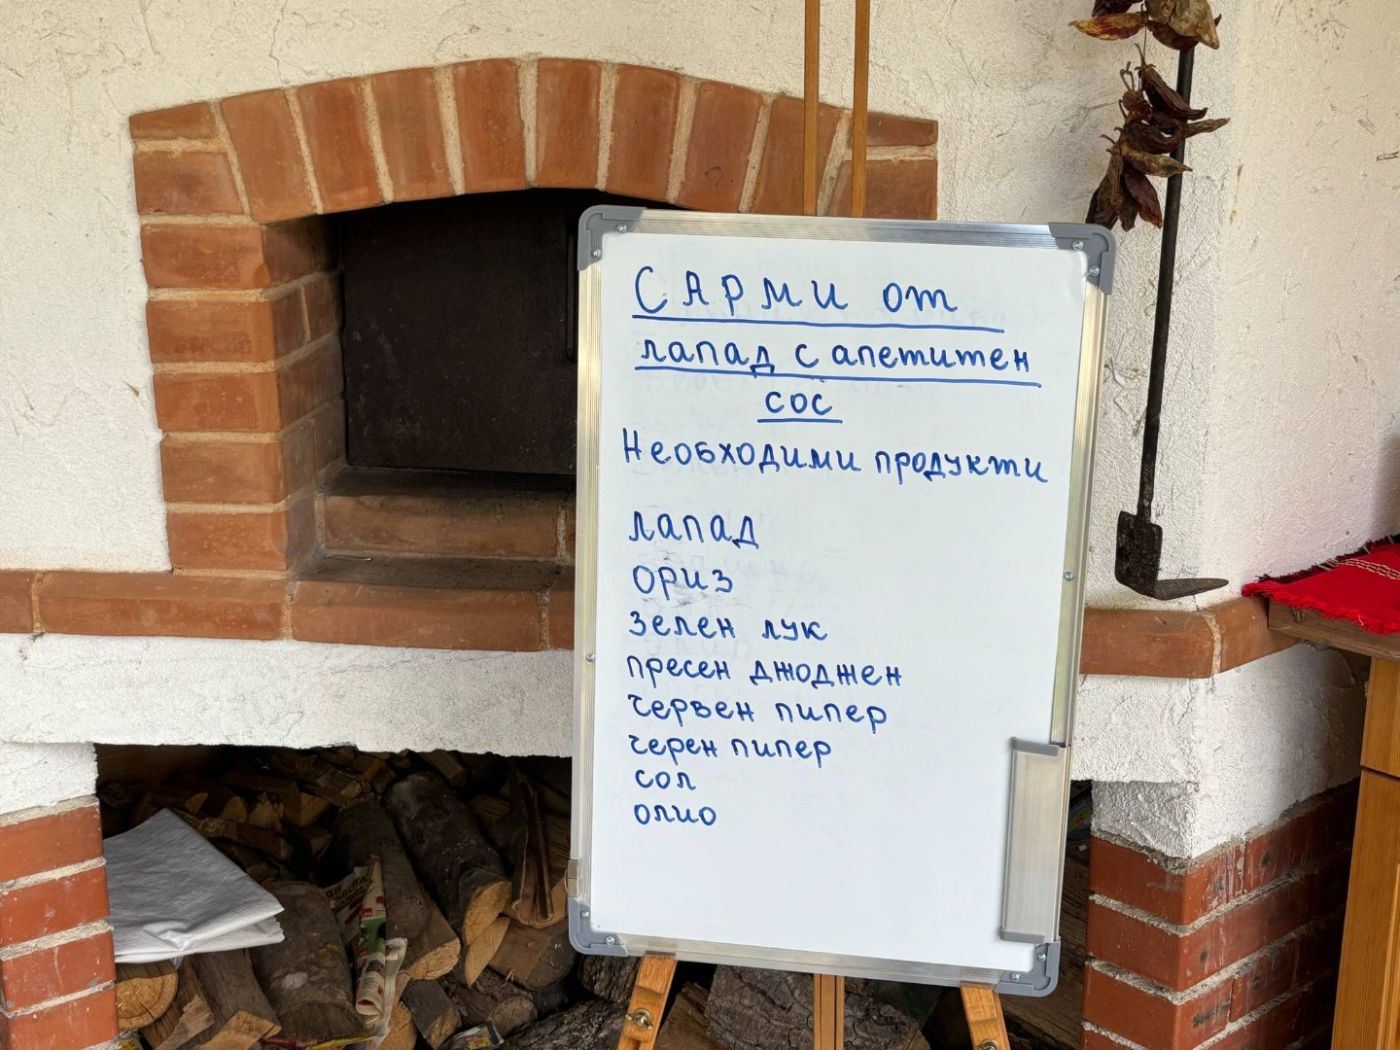 САРМИ от
лапад с апетитен
сос
Необходими продукти
лапад
ориз
зелен лук
пресен джоджен
червен пипер
черен пипер
сол
олио